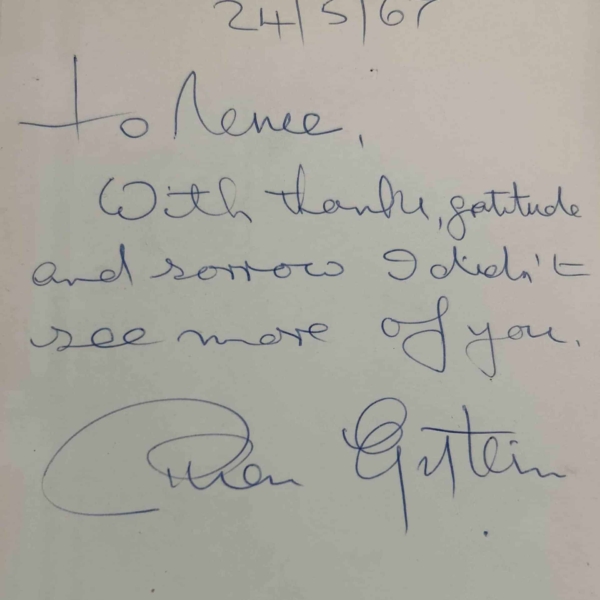 24/5/67
To Renee,
With thanks, gratitude
and sorrow I didn't
see more of you.
Epstein